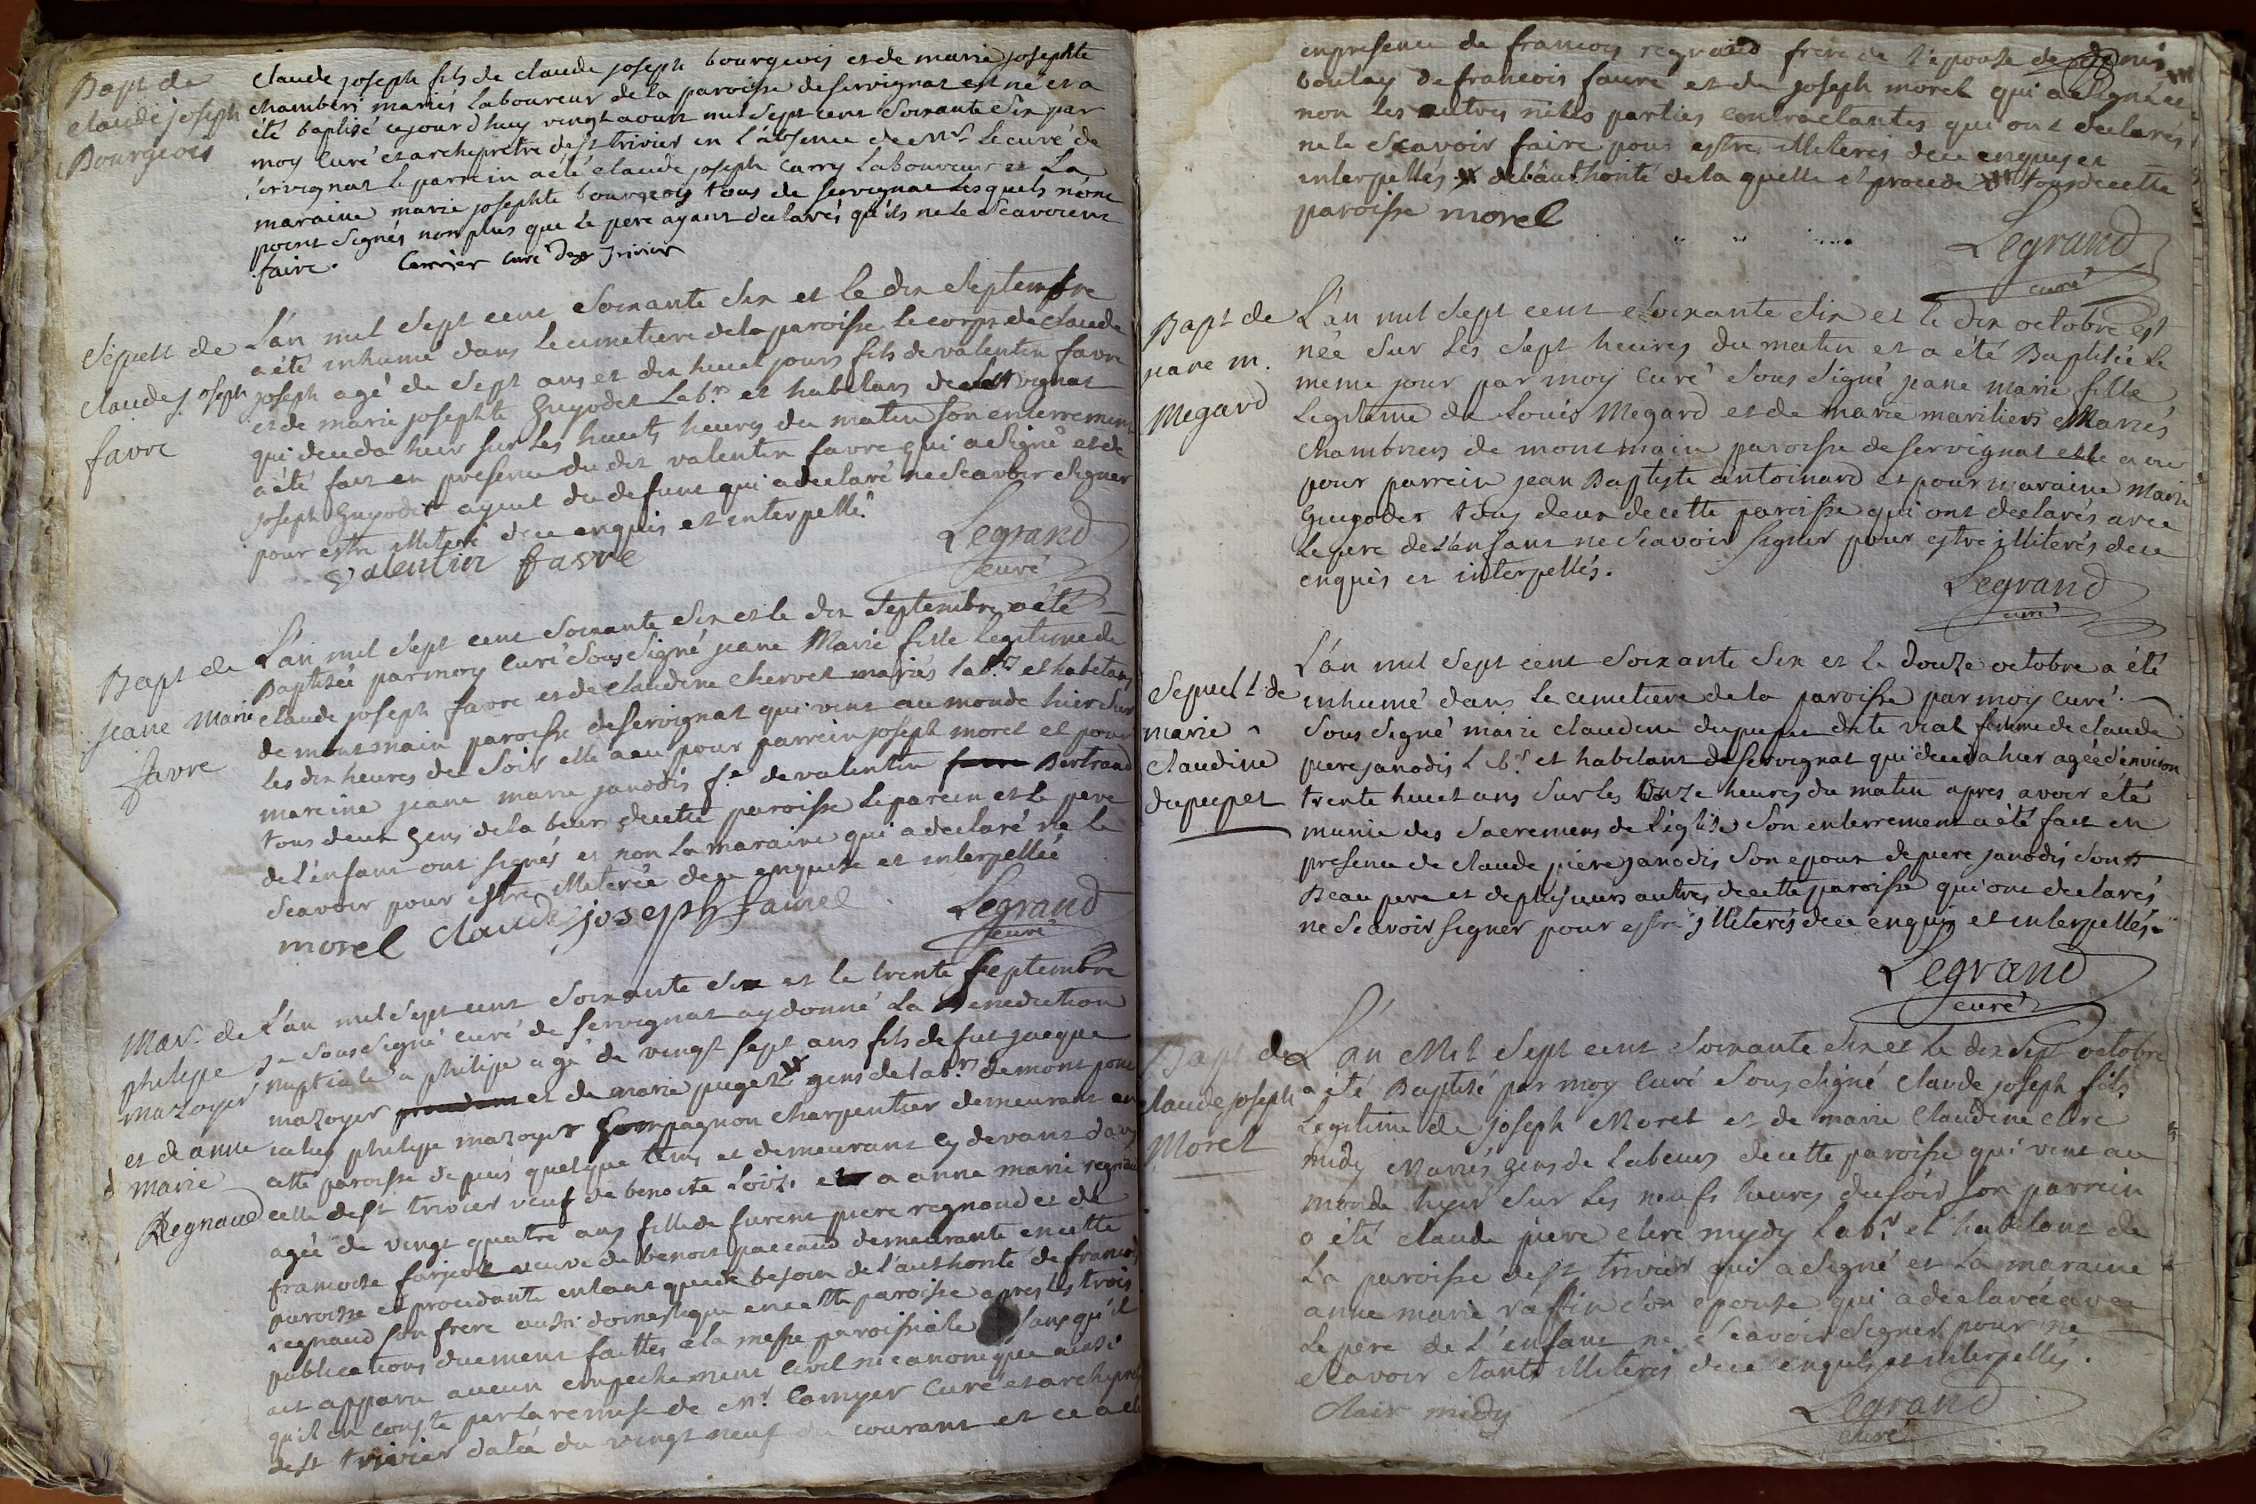 Bapt de
claude joseph
Bourgeois
claude joseph fils de claude joseph bourgeois et de marie josephte
chamberi mariés laboureur de la paroisse de servignat est né et a
été baptisé cejourdhuy vingt aoust mil sept cent soixante dix par
moy curé et archiprêtre de st trivier en l'absence de mr le curé de
servignat le parrein a été claude joseph carry laboureur et la
maraine marie josephte bourgeois tous de servignat lesquels n'ont
point signés non plus que le pere ayant declarés qu'ils ne le scavoient
faire. curé de st trivier
Sepult de
claude joseph
favre
L'an mil sept cent soixante dix et le dix septembre
a été inhumé dans le cimetiere de la paroisse le corps de claude
joseph agé de sept ans et dix huit jours fils de valentin favre
et de marie josephte guyodet labr. et habitans de servignat
qui deceda hier sur les huits heures du matin son enterrement
a été fait en presence du dit valentin favre qui a signé et de
joseph guyodet ayeul du defunt qui a declaré ne scavoir signer
pour estre illiteré de ce enquis et interpellé.
valentin favre
Legrand
curé
Bapt de
jeane Marie
favre
L'an mil sept cent soixante dix et le dix septembre a été
Baptisée par moy curé sous signé jeane Marie fille legitime de
claude joseph favre et de claudine chervet mariés labrs. et habitans
de montmain paroisse de servignat qui vint au monde hier sur
les dix heures du soir elle a eu pour parrein joseph morel et pour
mareine jeane marie janodis fe. de valentin Bertrand
tous deux gens de labeur de cette paroisse le parein et le pere
de l'enfant ont signés et non la maraine qui a declaré ne le
scavoir pour estre illiterée de ce enquise et interpellée
morel claude joseph favre
Legrand
curé
Mar. de
philipe
mazoyer
et de anne
marie
Regnaud
L'an mil sept cent soixante dix et le trente septembre
je sous signé curé de servignat ay donné la Benediction
nuptiale a philipe agé de vingt sept ans fils de fut jacque
mazoyer et de marie puget gens de labr. de mont pont
icelui philipe mazoyer compagnon charpentier demeurant en
cette paroisse depuis quelque tems et demeurant cy devant dans
celle de st trivier veuf de benoite et a anne marie regnaud
agée de vingt quatre ans fille de furent piere regnaud et de
francoise veuve de benoit paccaud demeurante en cette
paroisse et procedante entant que de besoin de l'authorité de francois
regnaud son frere aussi domestique en cette paroisse apres les trois
publications duement faittes a la messe paroissiale sans qu'il
ait apparu aucun empechement civil ni canonique ainsi
qu'il en conste par la remise de mr. curé et archipretre
de st trivier datée du vingt neuf du courant et ce a été
en presence de francois regnaud frere de l'epouse de denis
boulay de francois favre et de joseph morel qui a signé et
non les autres ni les parties contractantes qui ont declarés
ne le scavoir faire pour estre illiterés de ce enquis et
interpellés de l'authorité de laquelle et procede tous de cette
paroisse morel
Legrand
curé
Bapt de
jeane m.
Megard
L'an mil sept cent soixante dix et le dix octobre est
née sur les sept heures du matin et a été Baptisée le
meme jour par moy curé sous signé jeane marie fille
legitime de Louis Megard et de marie mariliers Mariés
chambriers de montmain paroisse de servignat elle a eu
pour parrein jean Baptiste antoinard et pour maraine Marie
guyodet tous deux de cette paroisse qui ont declarés avec
le pere de l'enfant ne scavoir signer pour estre illiterés de ce
enquis et interpellés.
Legrand
curé
Sepult de
marie
claudine
dupupet
L'an mil sept cent soixante dix et le douze octobre a été
inhumé dans le cimetiere de la paroisse par moy curé
sous signé marie claudine dupupet dite vial femme de claude
piere janodis lbr. et habitant de servignat qui deceda hier agée d'environ
trente huit ans sur les onze heures du matin apres avoir été
munie des sacremens de l'église son enterrement a été fait en
presence de claude piere janodis son epoux de piere janodis son
Beau pere et de plusieurs autres de cette paroisse qui ont declarés
ne scavoir signer pour estre illiterés de ce enquis et interpellés.
Legrand
curé
Bapt de
claude joseph
Morel
L'an Mil sept cent soixante dix et le dix sept octobre
a été Baptisé par moy curé sous signé claude joseph fils
legitime de joseph Morel et de marie claudine clere
midy Mariés gens de labeur de cette paroisse qui vint au
monde hyer sur les neufs heures du soir son parrein
a été claude piere clere mydy labr. et habitant de
la paroisse de st trivier qui a signé et la maraine
anne marie raffin son epouse qui a declarée avec
le pere de l'enfant ne scavoir signer pour ne
scavoir etants illiterés de ce enquis et interpellés.
clair midy
Legrand
curé